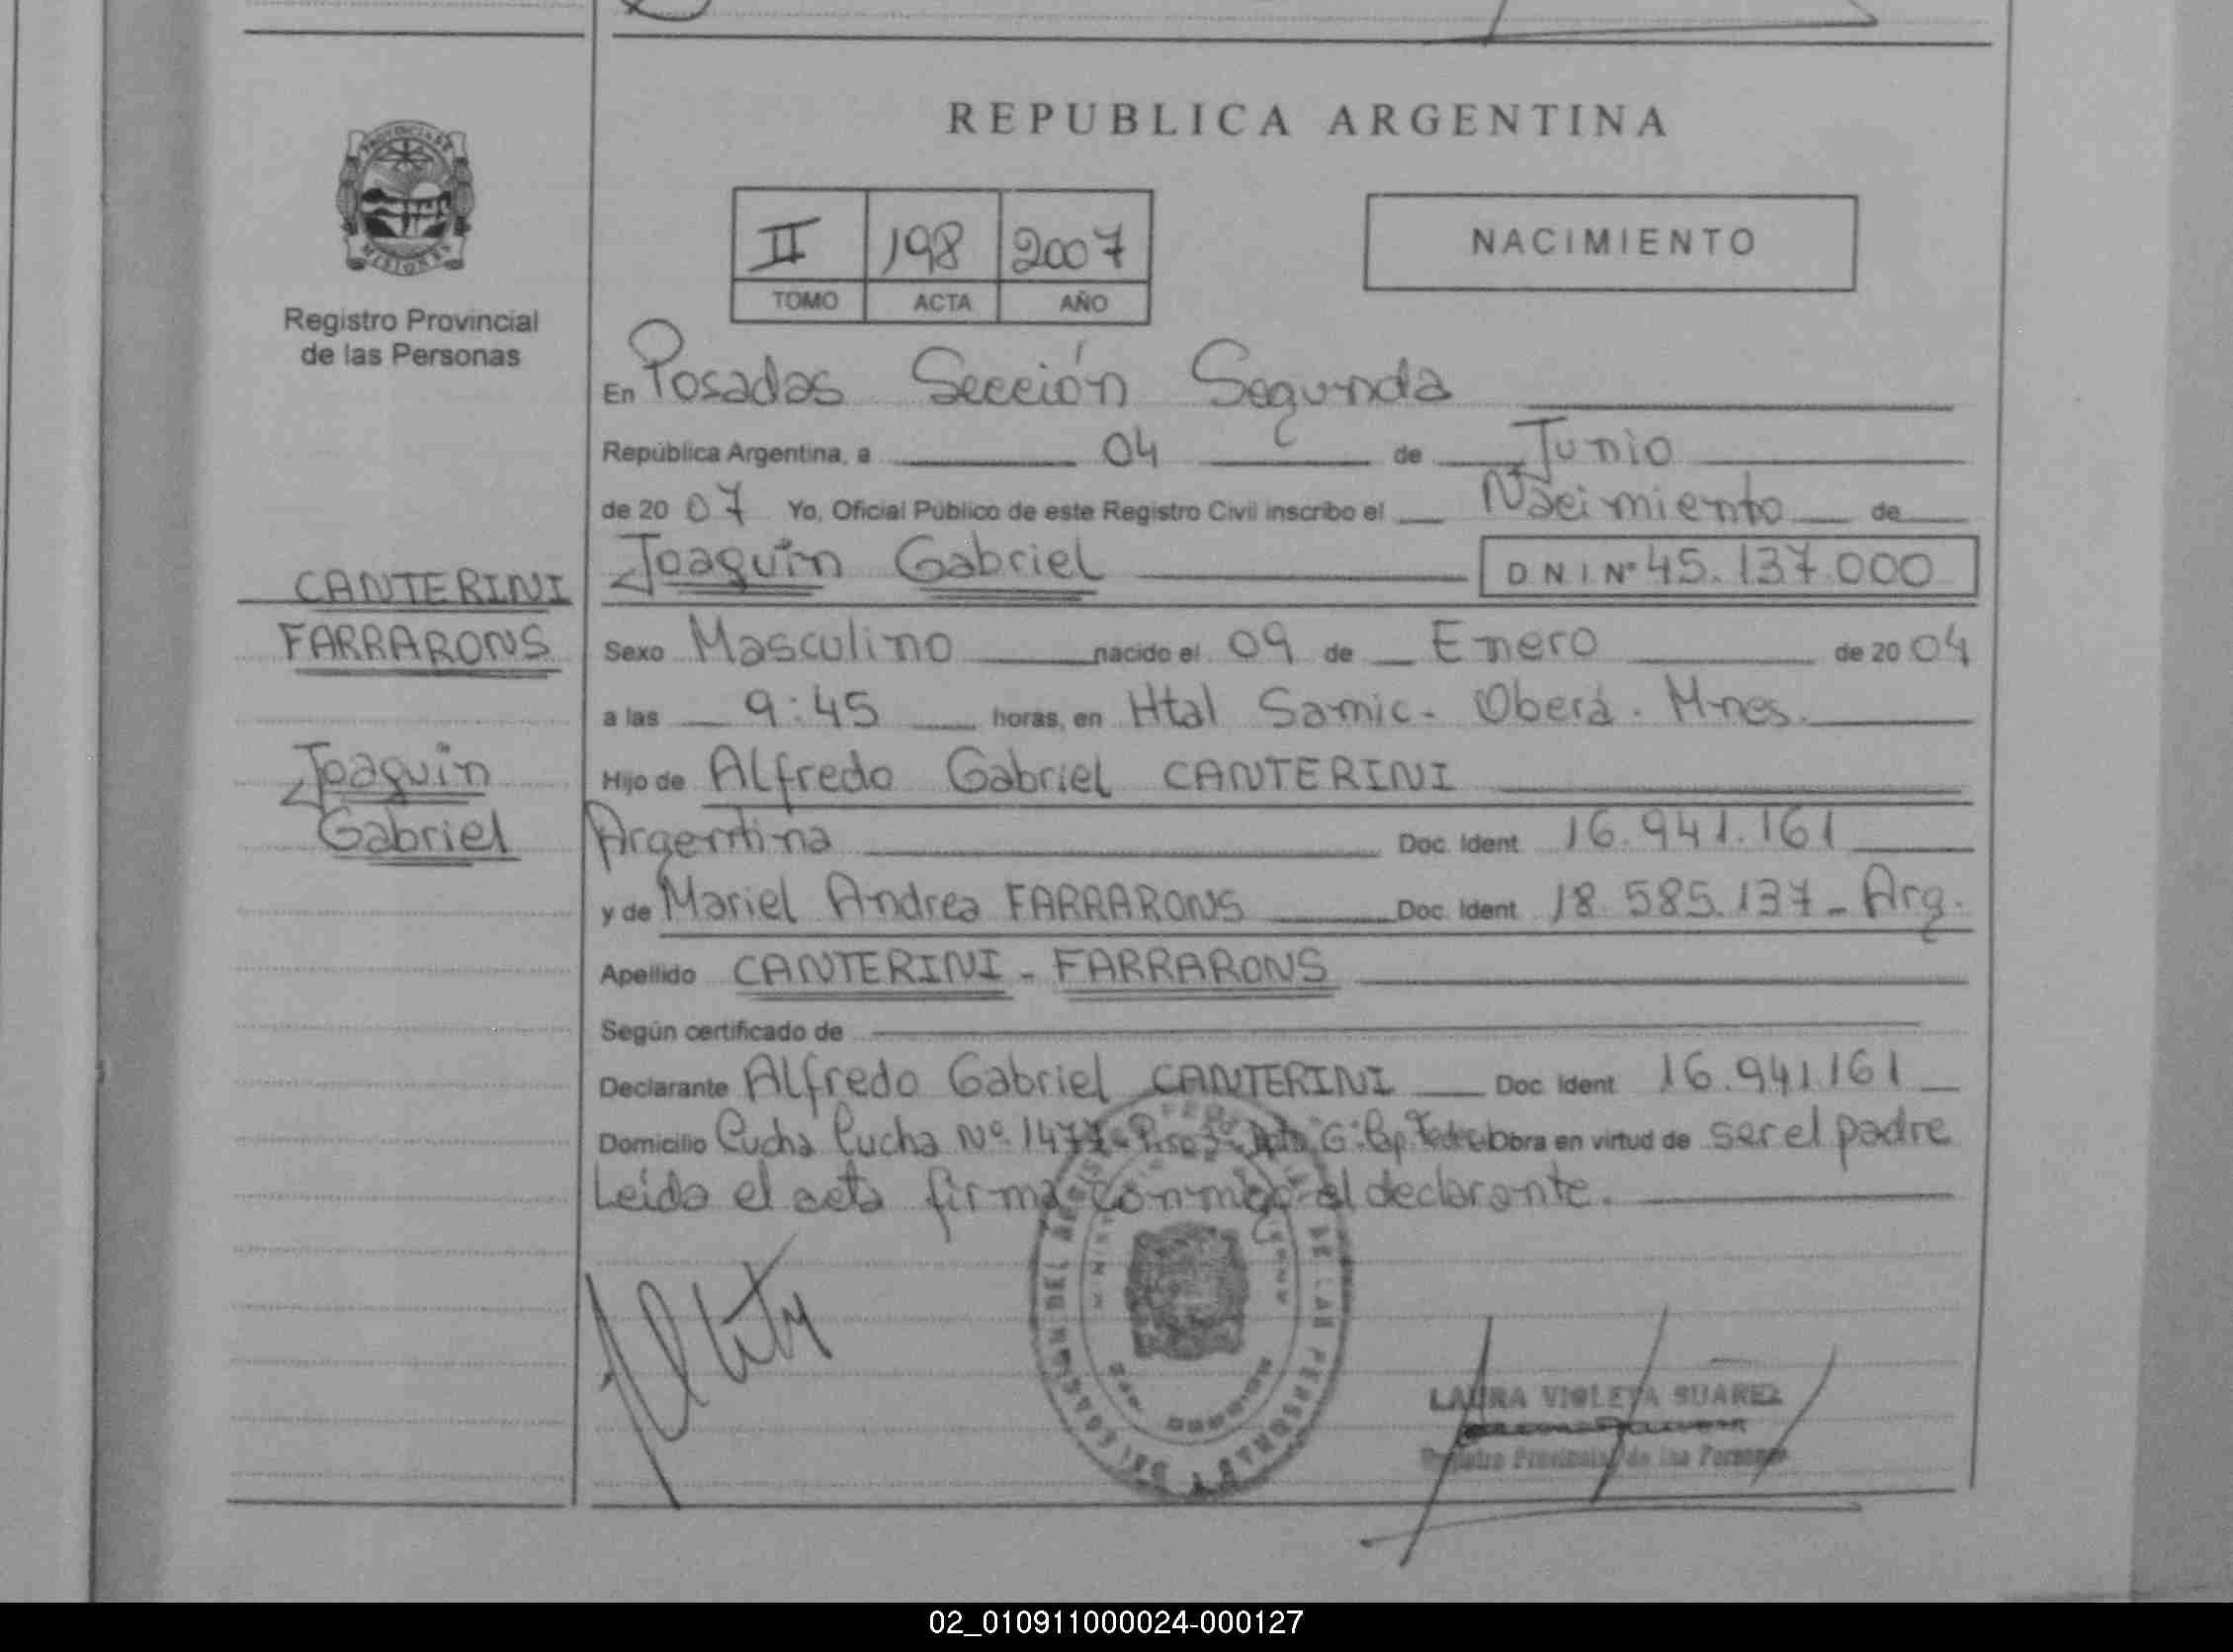 REPUBLICA ARGENTINA
PROVINCIA DE
MISIONES
Registro Provincial
de las Personas
II 198 2007
TOMO ACTA AÑO
NACIMIENTO
En Posadas Sección Segunda
República Argentina, a 04 de Junio
de 20 07 Yo, Oficial Público de este Registro Civil inscribo el Nacimiento de
Joaquin Gabriel DNI Nº 45.137.000
CANTERINI
FARRARONS
Joaquin
Gabriel
Sexo Masculino nacido el 09 de Enero de 20 04
a las 9:45 horas, en Htal Samic. Oberá. Mnes.
Hijo de Alfredo Gabriel CANTERINI
Argentina Doc. Ident 16.941.161
y de Mariel Andrea FARRARONS Doc. Ident 18.585.137 - Arg.
Apellido CANTERINI - FARRARONS
Según certificado de
Declarante Alfredo Gabriel CANTERINI Doc. Ident 16.941.161
Domicilio Cucha Cucha Nº G. Cap. Obra en virtud de ser el padre
Leída el acta firma conmigo el declarante.
DE LAS PERSONAS
LAURA VIOLETA SUAREZ
Registro Provincial de las Personas
02_010911000024-000127